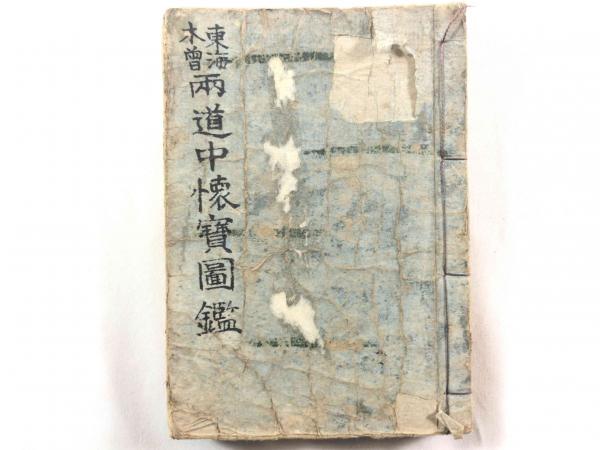 東海
木曽
兩道中懷寶圖鑑